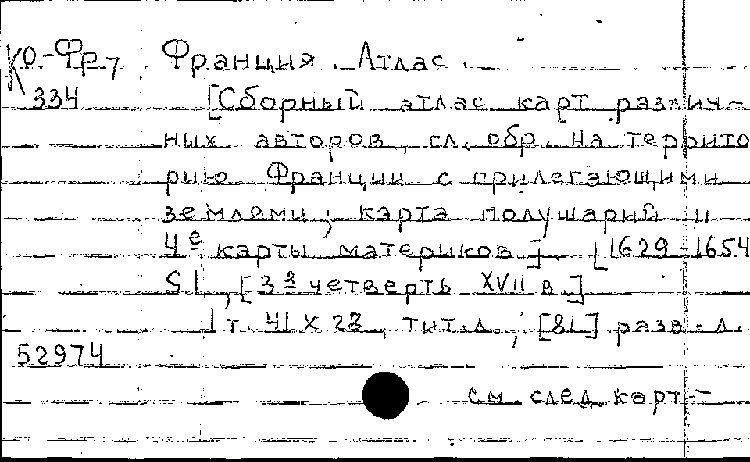 КО-Фр, Франция. Атлас.
334 [Сборный атлас карт различ-
ных авторов, гл. обр. на террито
рию Франции с прилегающими
землями; карта полушарий и
4е карты материков]. [1629-1654
S l, [3я четверть XVII в.]
1 т. 41 х 28, тит. л., [81] разв. л.
52974
см. след. карт-